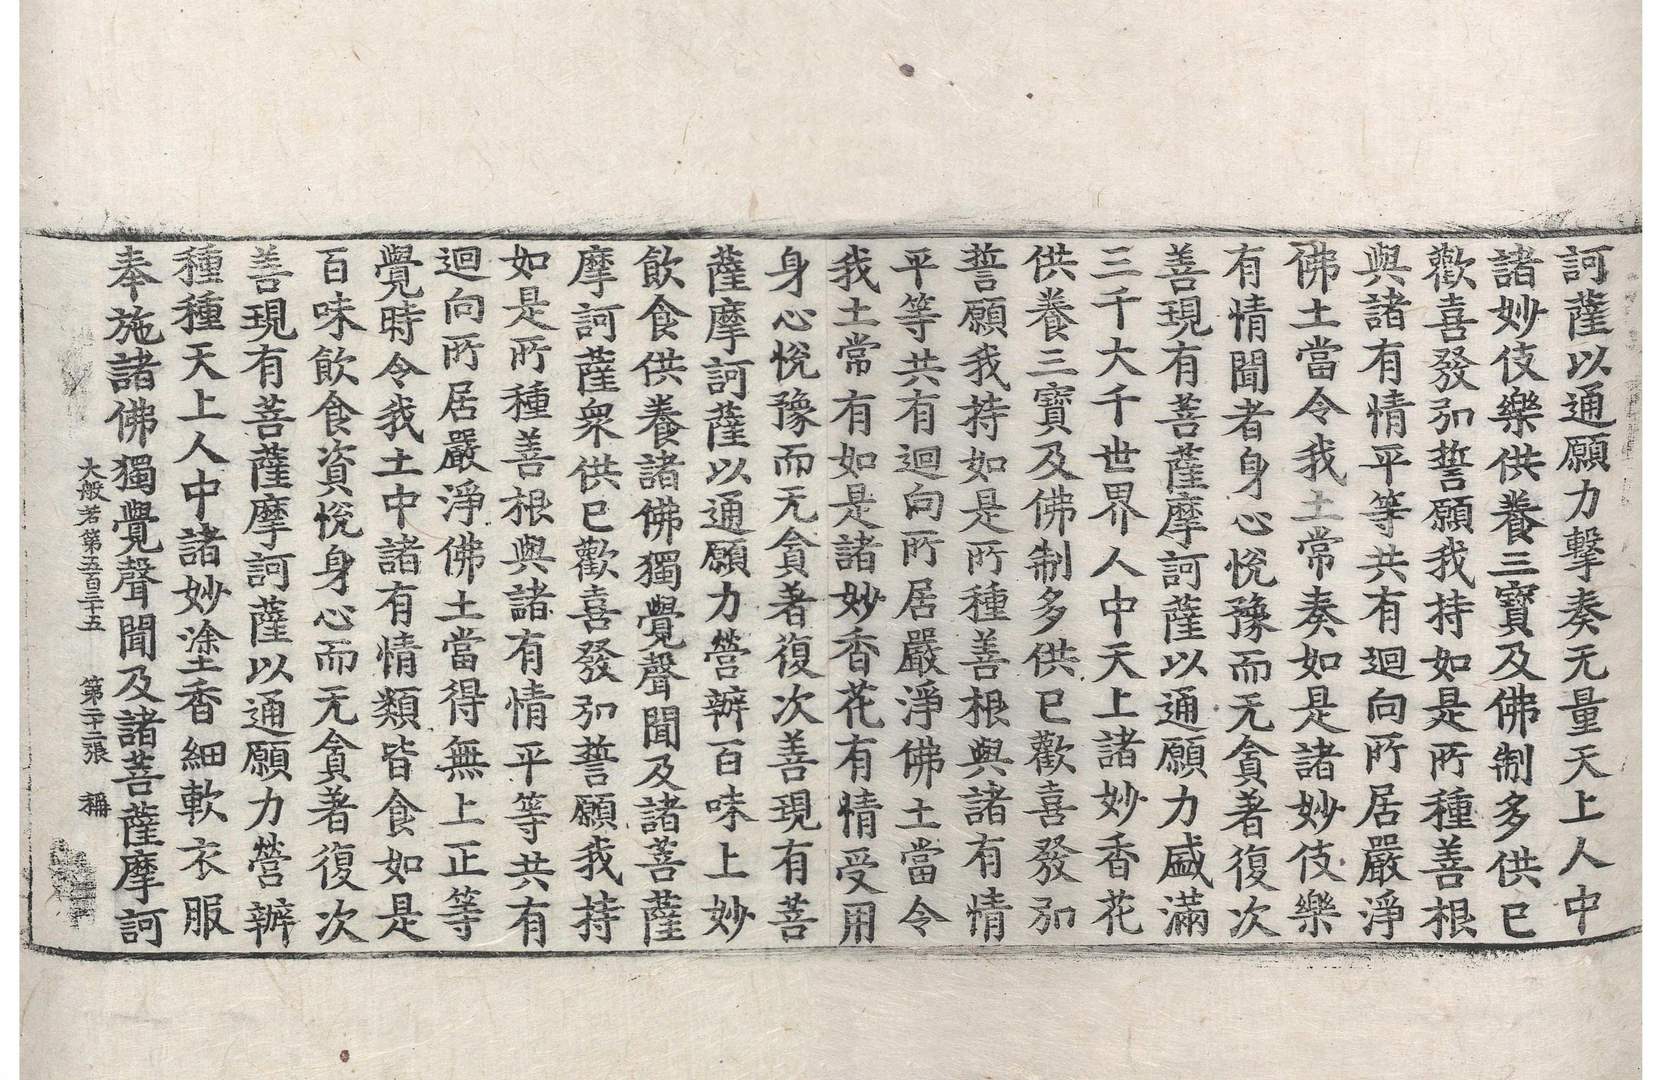 訶薩以通願力擊奏无量天上人中
諸妙伎樂供養三寶及佛制多供已
歡喜發弘誓願我持如是所種善根
與諸有情平等共有迴向所居嚴淨
佛土當令我土常奏如是諸妙伎樂
有情聞者身心悅豫而无貪著復次
善現有菩薩摩訶薩以通願力盛滿
三千大千世界人中天上諸妙香花
供養三寶及佛制多供已歡喜發弘
誓願我持如是所種善根與諸有情
平等共有迴向所居嚴淨佛土當令
我土常有如是諸妙香花有情受用
身心悅豫而无貪著復次善現有菩
薩摩訶薩以通願力營辦百味上妙
飲食供養諸佛獨覺聲聞及諸菩薩
摩訶薩衆供已歡喜發弘誓願我持
如是所種善根與諸有情平等共有
迴向所居嚴淨佛土當得無上正等
覺時令我土中諸有情類皆食如是
百味飲食資悅身心而无貪著復次
善現有菩薩摩訶薩以通願力營辦
種種天上人中諸妙塗香細軟衣服
奉施諸佛獨覺聲聞及諸菩薩摩訶
大般若第五百三十五 第二十二張 稱